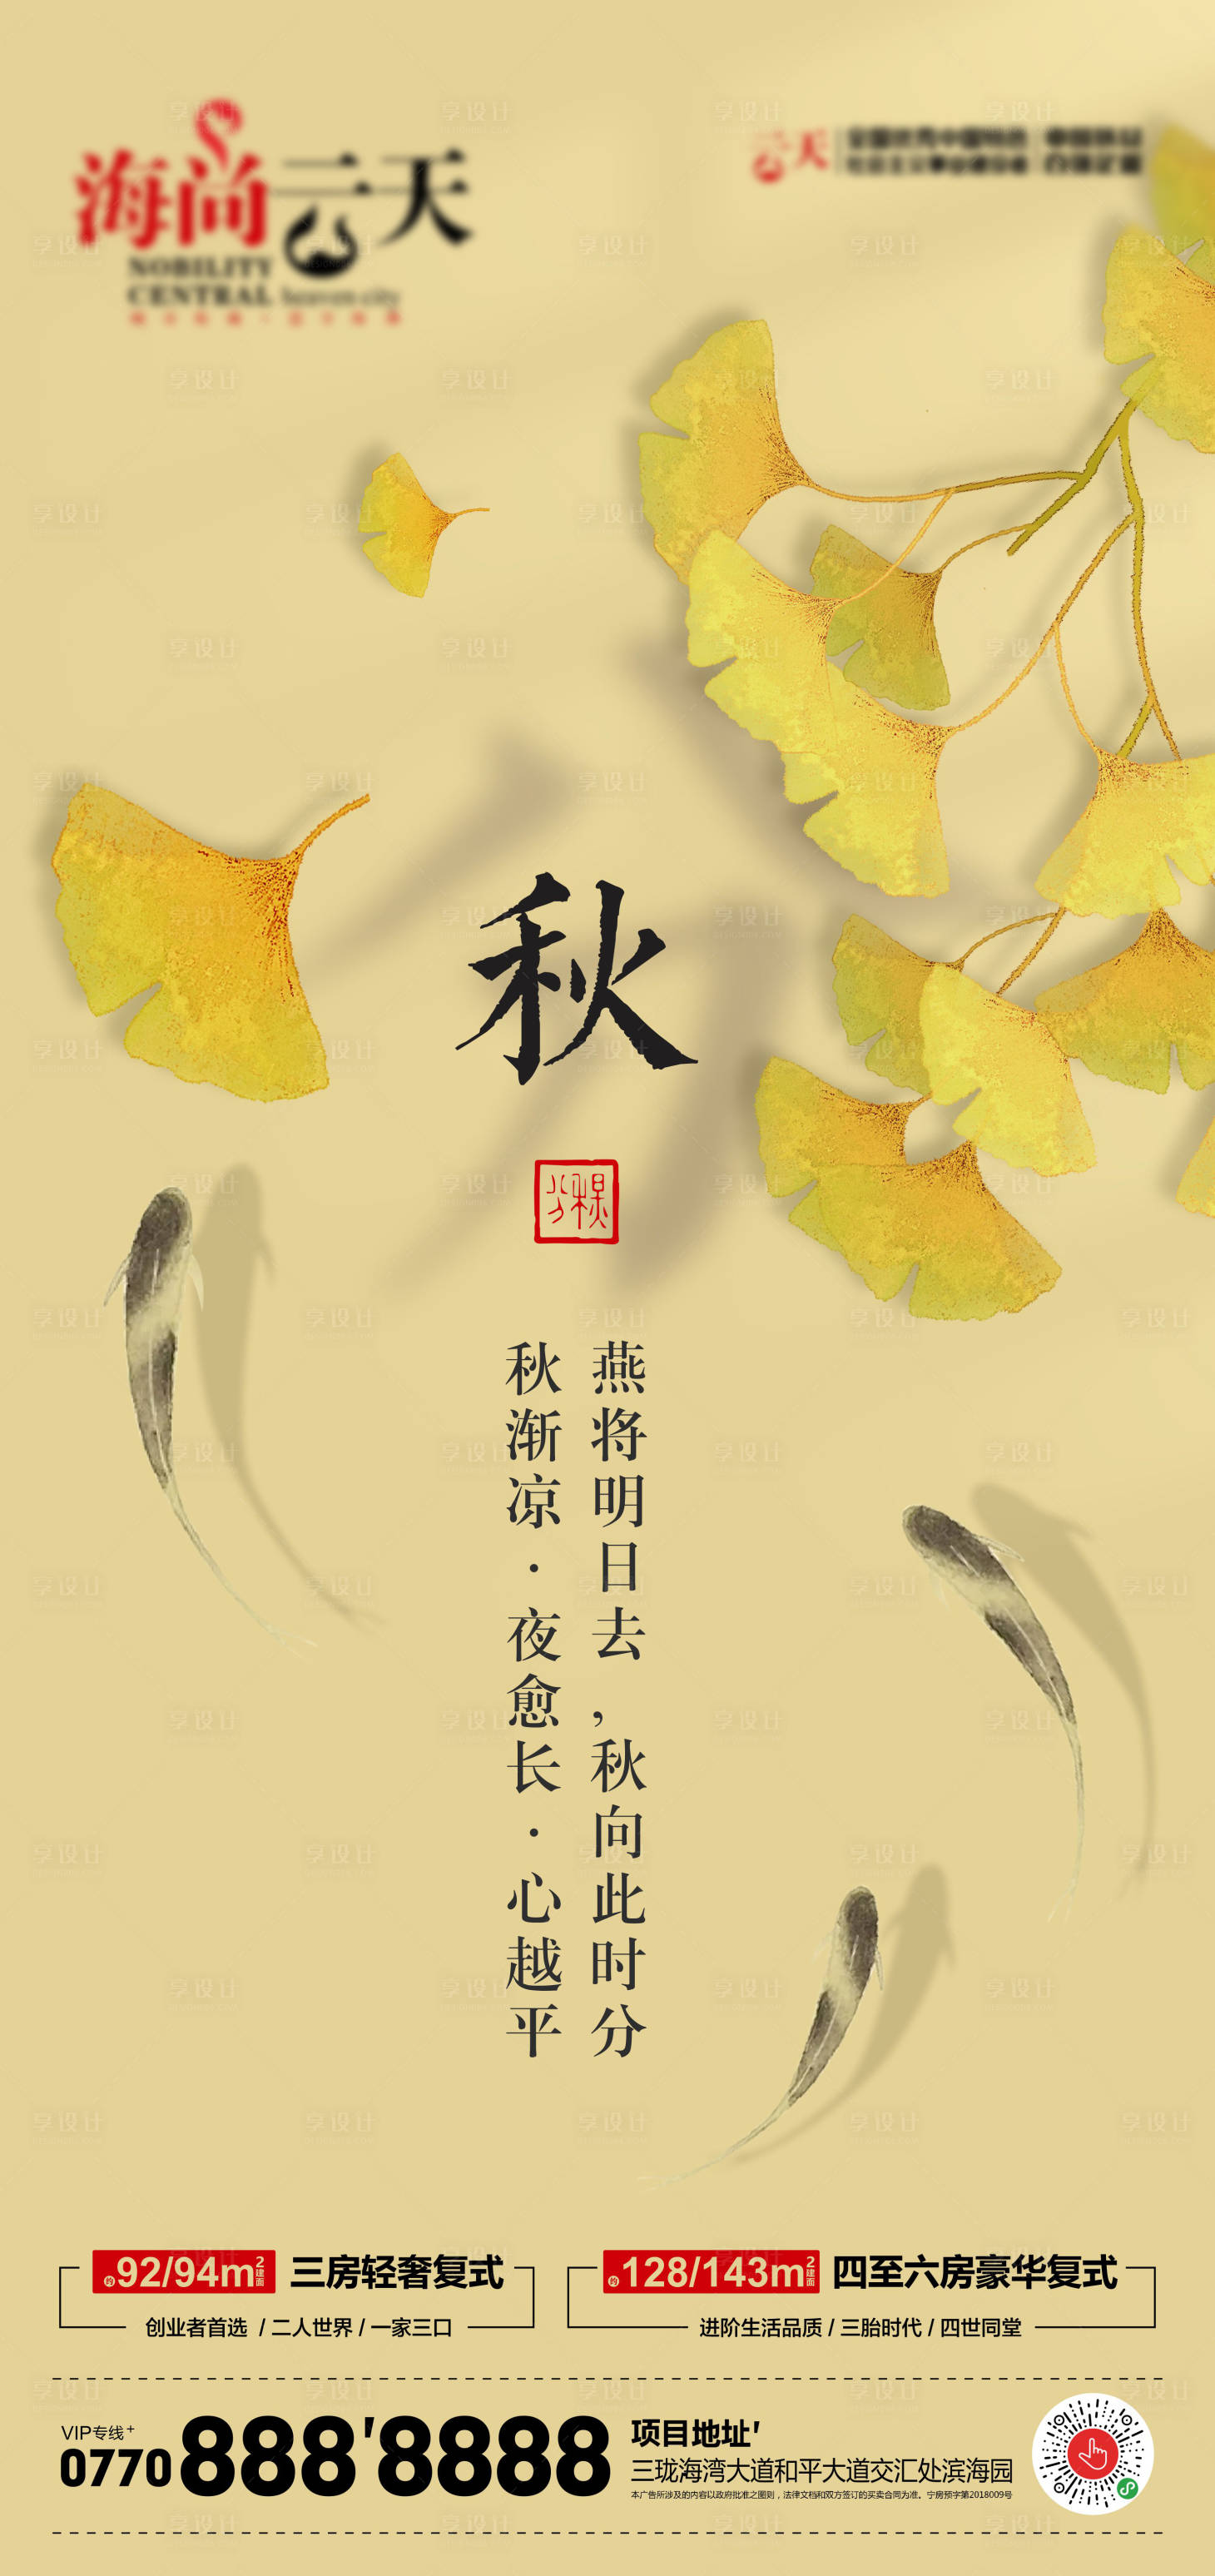 海尚云天
NOBILITY
CENTRAL heaven city
云天
秋
秋分
燕将明日去，秋向此时分
秋渐凉·夜愈长·心越平
约92/94m²建面 三房轻奢复式
创业者首选 / 二人世界 / 一家三口
约128/143m²建面 四至六房豪华复式
进阶生活品质 / 三胎时代 / 四世同堂
VIP专线+
0770 888'8888
项目地址'
三珑海湾大道和平大道交汇处滨海园
本广告所涉及的内容以政府批准之图则，法律文档和双方签订的买卖合同为准。宁房预字第2018009号
享设计